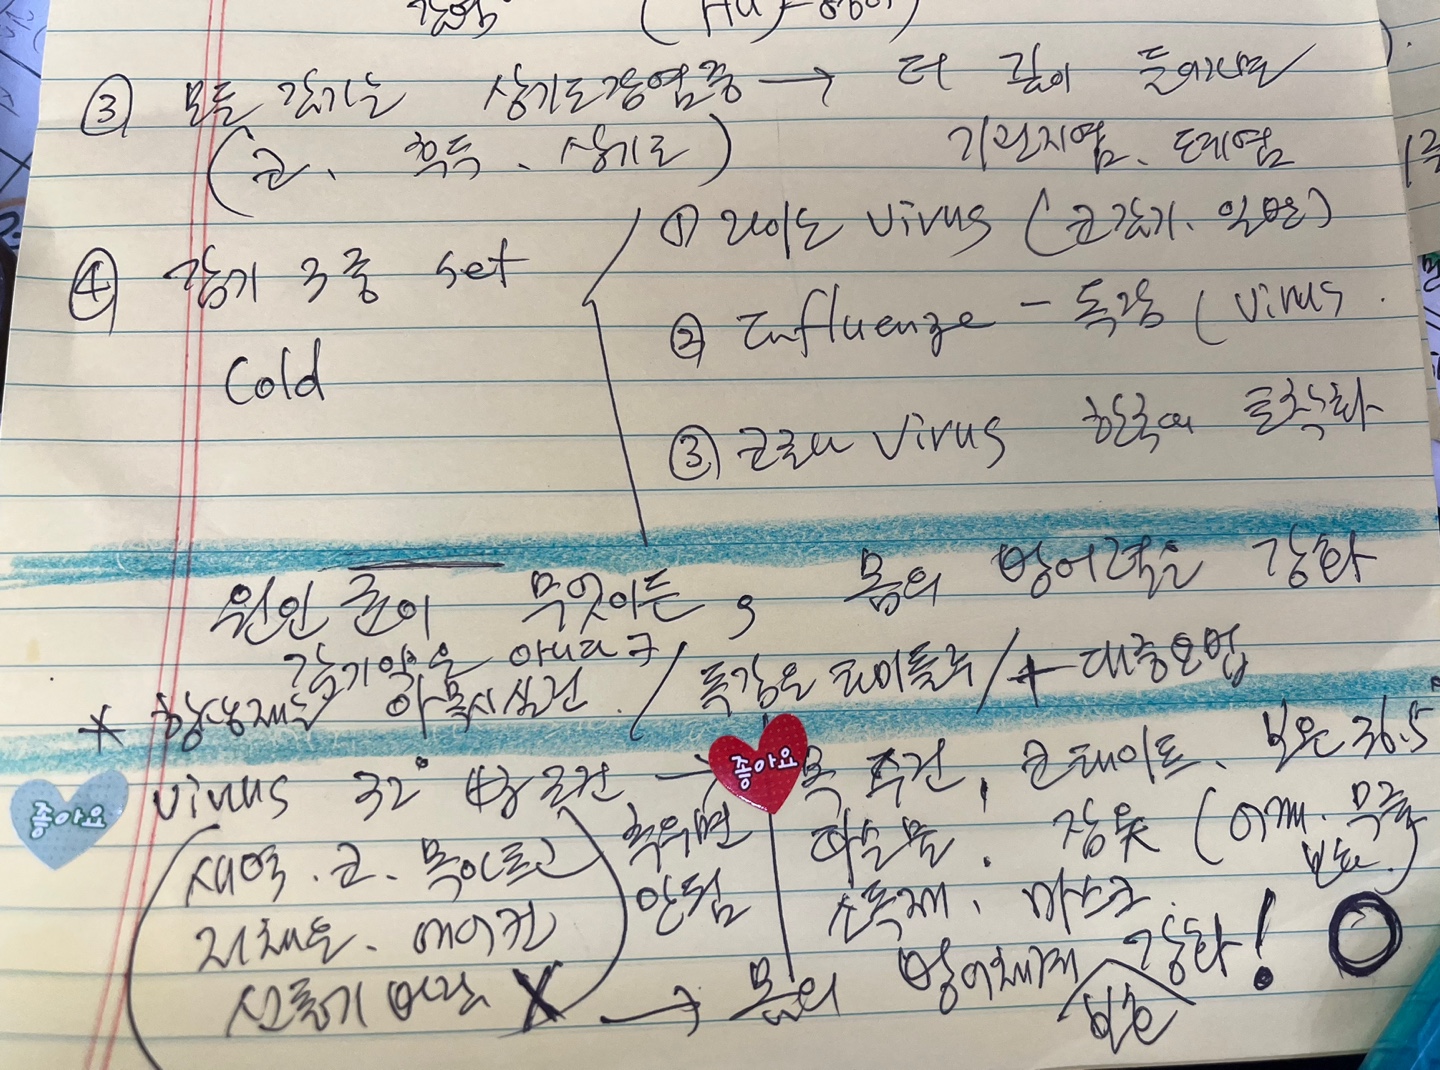 감염
③ 모든 감기는 상기도감염증 → 더 깊이 들어가면
(코、 후두、 상기도) 기관지염、 폐렴
④ 감기 3종 set
Cold
① 라이노 Virus (코감기. 일반)
② Influenze - 독감 ( Virus
③ 코로나 Virus 한국에 토착화
원인 균이 무엇이든, 몸의 방어력을 강화
감기약은 아니라구
* 항생제는 아목시실린 / 독감은 타미플루 / + 대증요법
좋아요
Virus 32° 방 조건 → 좋아요 목 수건, 코 테이프、 보온 36.5°
(새벽. 코. 목이로고 추우면 따순물. 잠옷 (어깨. 목쪽 보호)
안됨 소독제、 마스크
에어컨
선풍기 바람 X) → 몸의 방어체계 강화!
보온